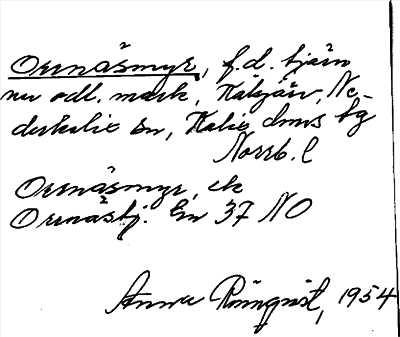 Ormnäsmyr, f.d. tjärn
nu odl. mark, Näsjärv, Ne-
derkalix sn, Kalix dms hg
Norrb. l
Ormnäsmyr, ek
Ormnästj. En 37 NO
Anna Rönnqvist, 1954